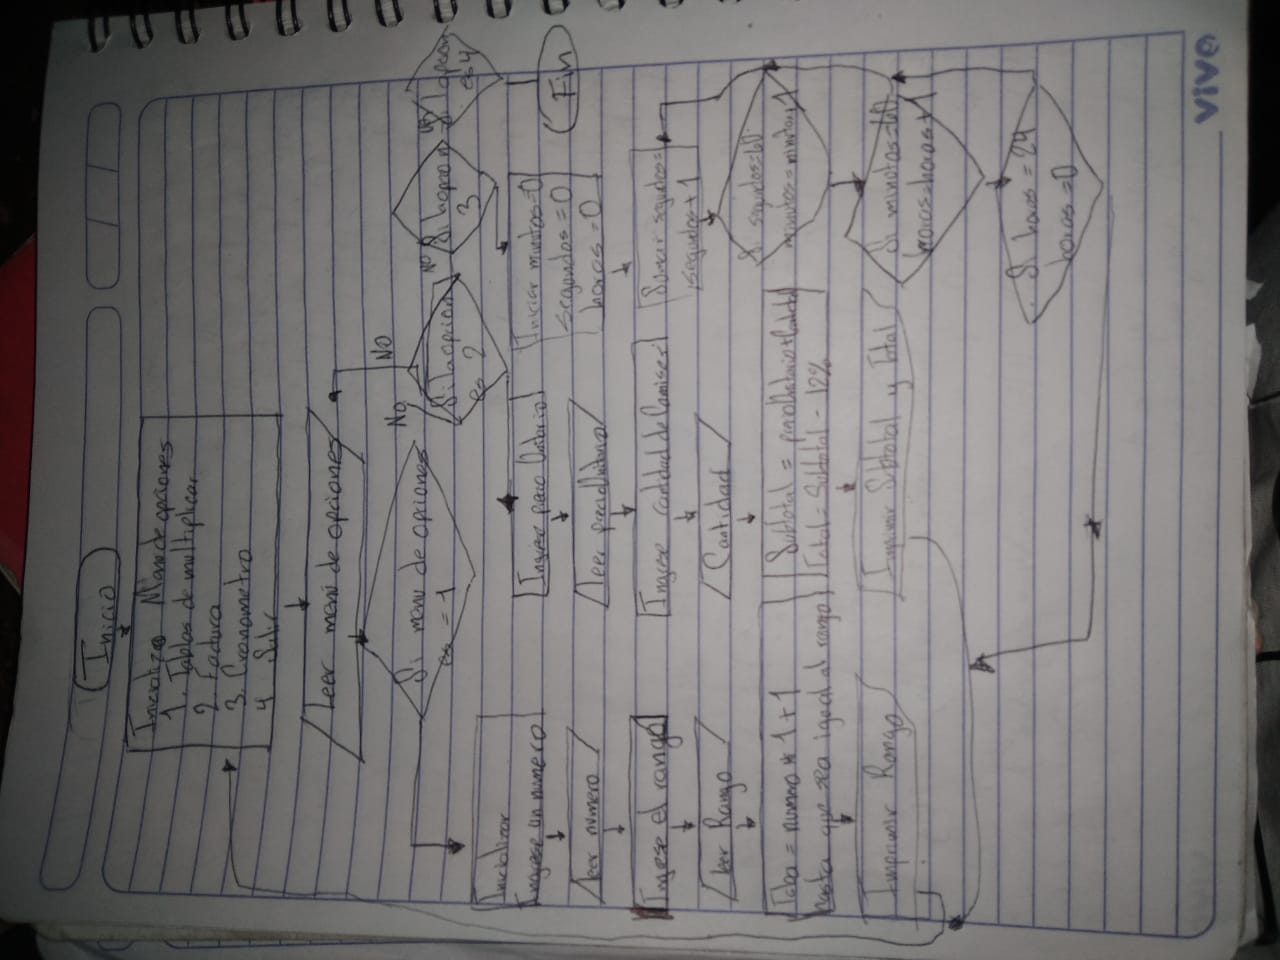 Inicio
Inicializo Menu de opciones
1. Tablas de multiplicar
2. Factura
3. Cronometro
4 Salir
Leer menú de opciones
Si menu de opciones
es = 1
No
No
Si la opcion
es 2
No
Si la opcion
3
Si opcion
es 4
Fin
Inicializar
Ingrese un numero
Leer numero
Ingese el rango
Leer Rango
Tabla = numero * 1 + 1
hasta que sea igual al rango
Imprimir Rango
Ingrese precio Unitario
Leer precioUnitario
Ingrese cantidad de Camisas
Cantidad
Subtotal = precioUnitario * Cantidad
Total = Subtotal - 12%
Imprimir Subtotal y Total
Iniciar minutos=0
segundos = 0
horas = 0
segundos =
segundos + 1
Si segundos=60
minutos = minutos+1
Si minutos=60
horas=horas+1
Si horas = 24
horas = 0
VIVA